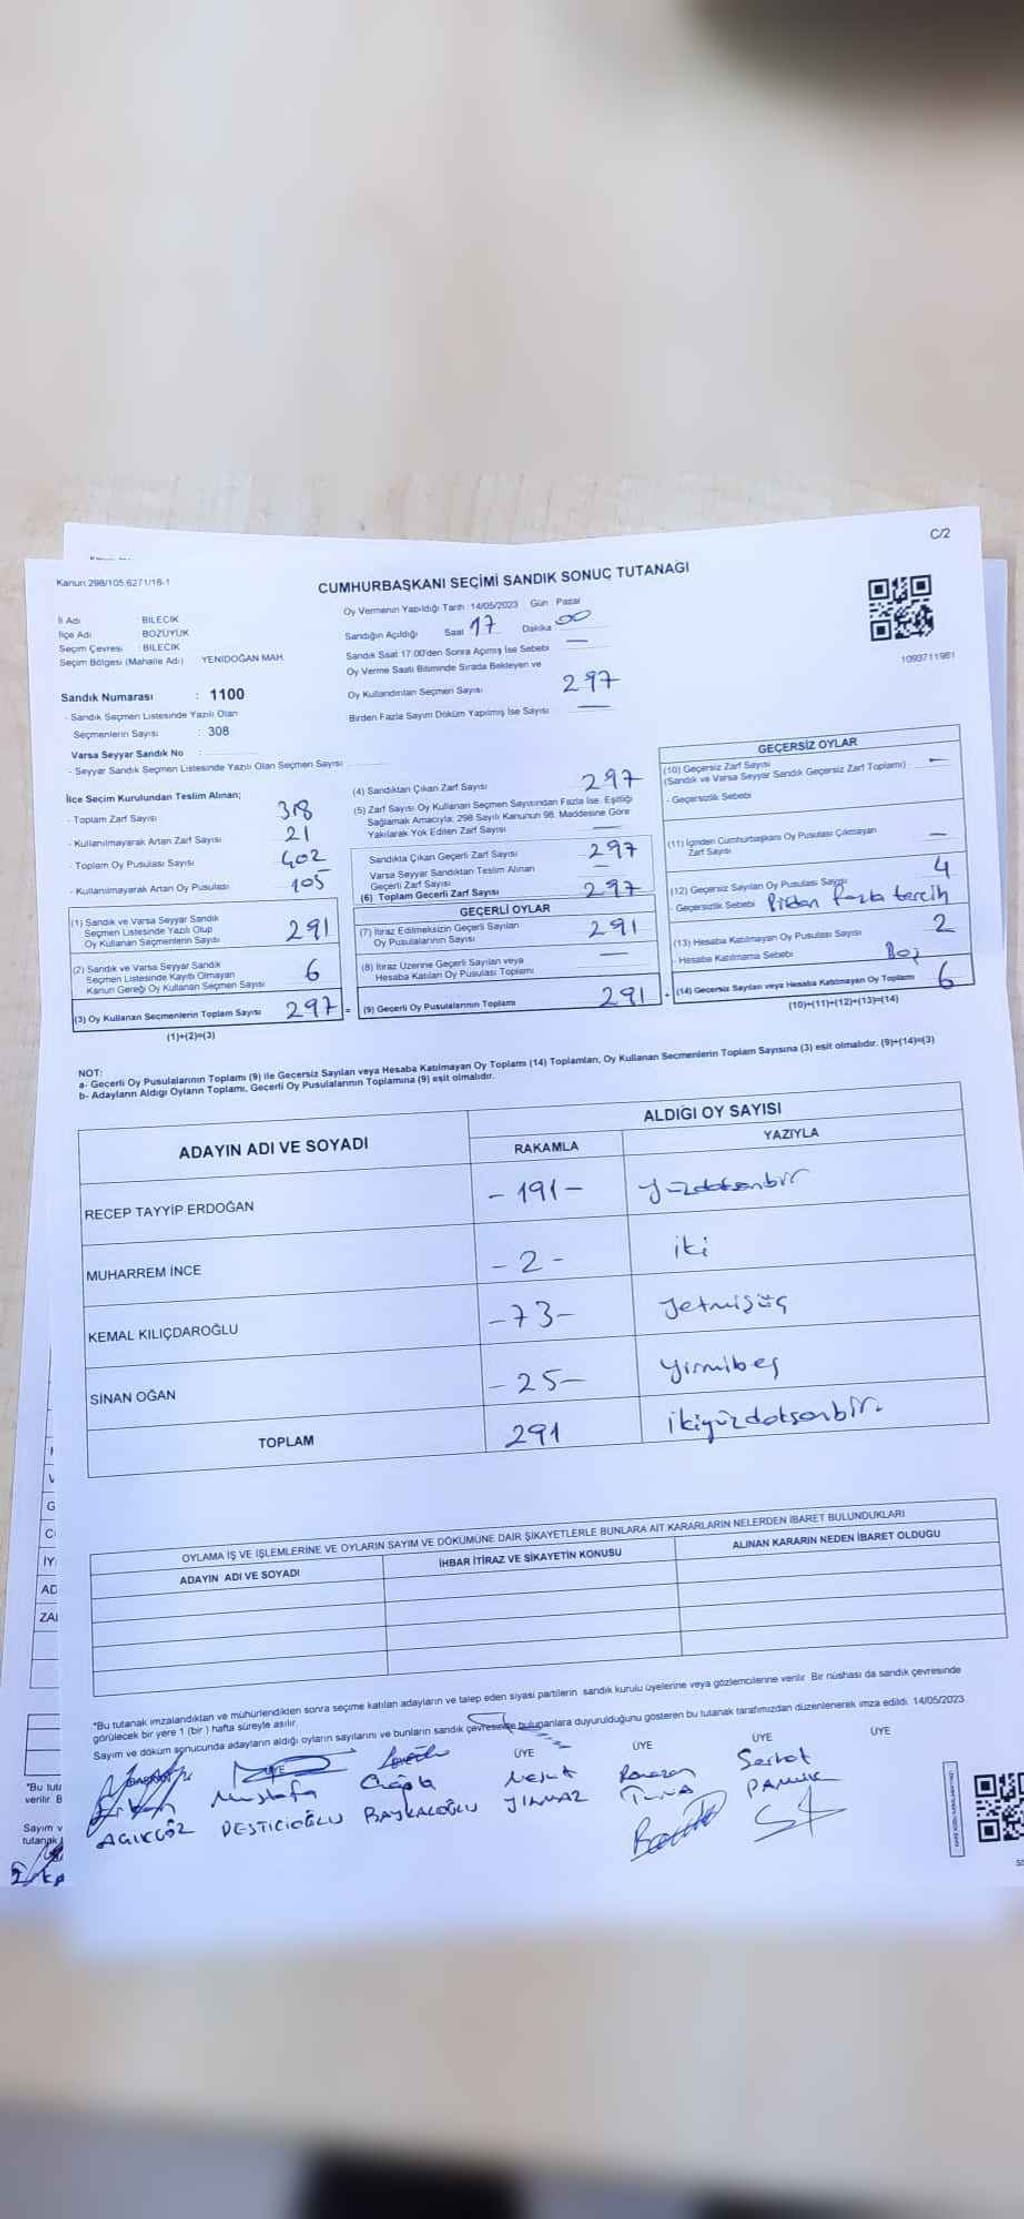 C/2
Kanun 298/105,6271/18-1
CUMHURBAŞKANI SEÇİMİ SANDIK SONUÇ TUTANAĞI
İl Adı BİLECİK
İlçe Adı BOZÜYÜK
Seçim Çevresi BİLECİK
Seçim Bölgesi (Mahalle Adı) YENİDOĞAN MAH.
Sandık Numarası : 1100
- Sandık Seçmen Listesinde Yazılı Olan
Seçmenlerin Sayısı : 308
Varsa Seyyar Sandık No :
- Seyyar Sandık Seçmen Listesinde Yazılı Olan Seçmen Sayısı
Oy Vermenin Yapıldığı Tarih : 14/05/2023 Gün : Pazar
Sandığın Açıldığı Saat 17 Dakika 00
Sandık Saat 17.00'den Sonra Açılmış İse Sebebi —
Oy Verme Saati Bitiminde Sırada Bekleyen ve
Oy Kullandırılan Seçmen Sayısı 297
Birden Fazla Sayım Döküm Yapılmış İse Sayısı —
1093711981
İlce Seçim Kurulundan Teslim Alınan;
- Toplam Zarf Sayısı 318
- Kullanılmayarak Artan Zarf Sayısı 21
- Toplam Oy Pusulası Sayısı 402
- Kullanılmayarak Artan Oy Pusulası 105
(1) Sandık ve Varsa Seyyar Sandık
Seçmen Listesinde Yazılı Olup
Oy Kullanan Seçmenlerin Sayısı 291
(2) Sandık ve Varsa Seyyar Sandık
Seçmen Listesinde Kayıtlı Olmayan
Kanun Gereği Oy Kullanan Seçmen Sayısı 6
(3) Oy Kullanan Seçmenlerin Toplam Sayısı 297 =
(1)+(2)=(3)
(4) Sandıktan Çıkan Zarf Sayısı 297
(5) Zarf Sayısı Oy Kullanan Seçmen Sayısından Fazla İse, Eşitliği
Sağlamak Amacıyla; 298 Sayılı Kanunun 98. Maddesine Göre
Yakılarak Yok Edilen Zarf Sayısı —
Sandıkta Çıkan Geçerli Zarf Sayısı 297
Varsa Seyyar Sandıktan Teslim Alınan
Geçerli Zarf Sayısı —
(6) Toplam Gecerli Zarf Sayısı 297
GEÇERLİ OYLAR
(7) İtiraz Edilmeksizin Geçerli Sayılan
Oy Pusulalarının Sayısı 291
(8) İtiraz Üzerine Geçerli Sayılan veya
Hesaba Katılan Oy Pusulası Toplamı —
(9) Gecerli Oy Pusulalarının Toplamı 291 +
GEÇERSİZ OYLAR
(10) Geçersiz Zarf Sayısı
(Sandık ve Varsa Seyyar Sandık Geçersiz Zarf Toplamı) —
- Geçersizlik Sebebi
(11) İçinden Cumhurbaşkanı Oy Pusulası Çıkmayan
Zarf Sayısı —
(12) Geçersiz Sayılan Oy Pusulası Sayısı 4
- Geçersizlik Sebebi Birden fazla tercih
(13) Hesaba Katılmayan Oy Pusulası Sayısı 2
- Hesaba Katılmama Sebebi Boş
(14) Gecersiz Sayılan veya Hesaba Katılmayan Oy Toplamı 6
(10)+(11)+(12)+(13)=(14)
NOT:
a- Gecerli Oy Pusulalarının Toplamı (9) ile Gecersiz Sayılan veya Hesaba Katılmayan Oy Toplamı (14) Toplamları, Oy Kullanan Secmenlerin Toplam Sayısına (3) esit olmalıdır. (9)+(14)=(3)
b- Adayların Aldığı Oyların Toplamı, Geçerli Oy Pusulalarının Toplamına (9) eşit olmalıdır.
ADAYIN ADI VE SOYADI
ALDIĞI OY SAYISI
RAKAMLA YAZIYLA
RECEP TAYYİP ERDOĞAN - 191 - yüzdoksanbir
MUHARREM İNCE - 2 - iki
KEMAL KILIÇDAROĞLU - 73 - Yetmişüç
SİNAN OĞAN - 25 - yirmibeş
TOPLAM 291 ikiyüzdoksanbir.
OYLAMA İŞ VE İŞLEMLERİNE VE OYLARIN SAYIM VE DÖKÜMÜNE DAİR ŞİKAYETLERLE BUNLARA AİT KARARLARIN NELERDEN İBARET BULUNDUKLARI
ADAYIN ADI VE SOYADI İHBAR İTİRAZ VE ŞİKAYETİN KONUSU ALINAN KARARIN NEDEN İBARET OLDUĞU
*Bu tutanak imzalandıktan ve mühürlendikten sonra seçime katılan adayların ve talep eden siyasi partilerin sandık kurulu üyelerine veya gözlemcilerine verilir. Bir nüshası da sandık çevresinde
görülecek bir yere 1 (bir ) hafta süreyle asılır.
Sayım ve döküm sonucunda adayların aldığı oyların sayılarını ve bunların sandık çevresinde bulunanlara duyurulduğunu gösteren bu tutanak tarafımızdan düzenlenerek imza edildi. 14/05/2023
ÜYE ÜYE ÜYE ÜYE
Mustafa Çağla Nejat Ramazan Serhat
AÇIKGÖZ DESTİCİOĞLU BAŞKALOĞLU YILMAZ TUNA PAMUK
*Bu tuta
verilir. B
Sayım v
tutanak